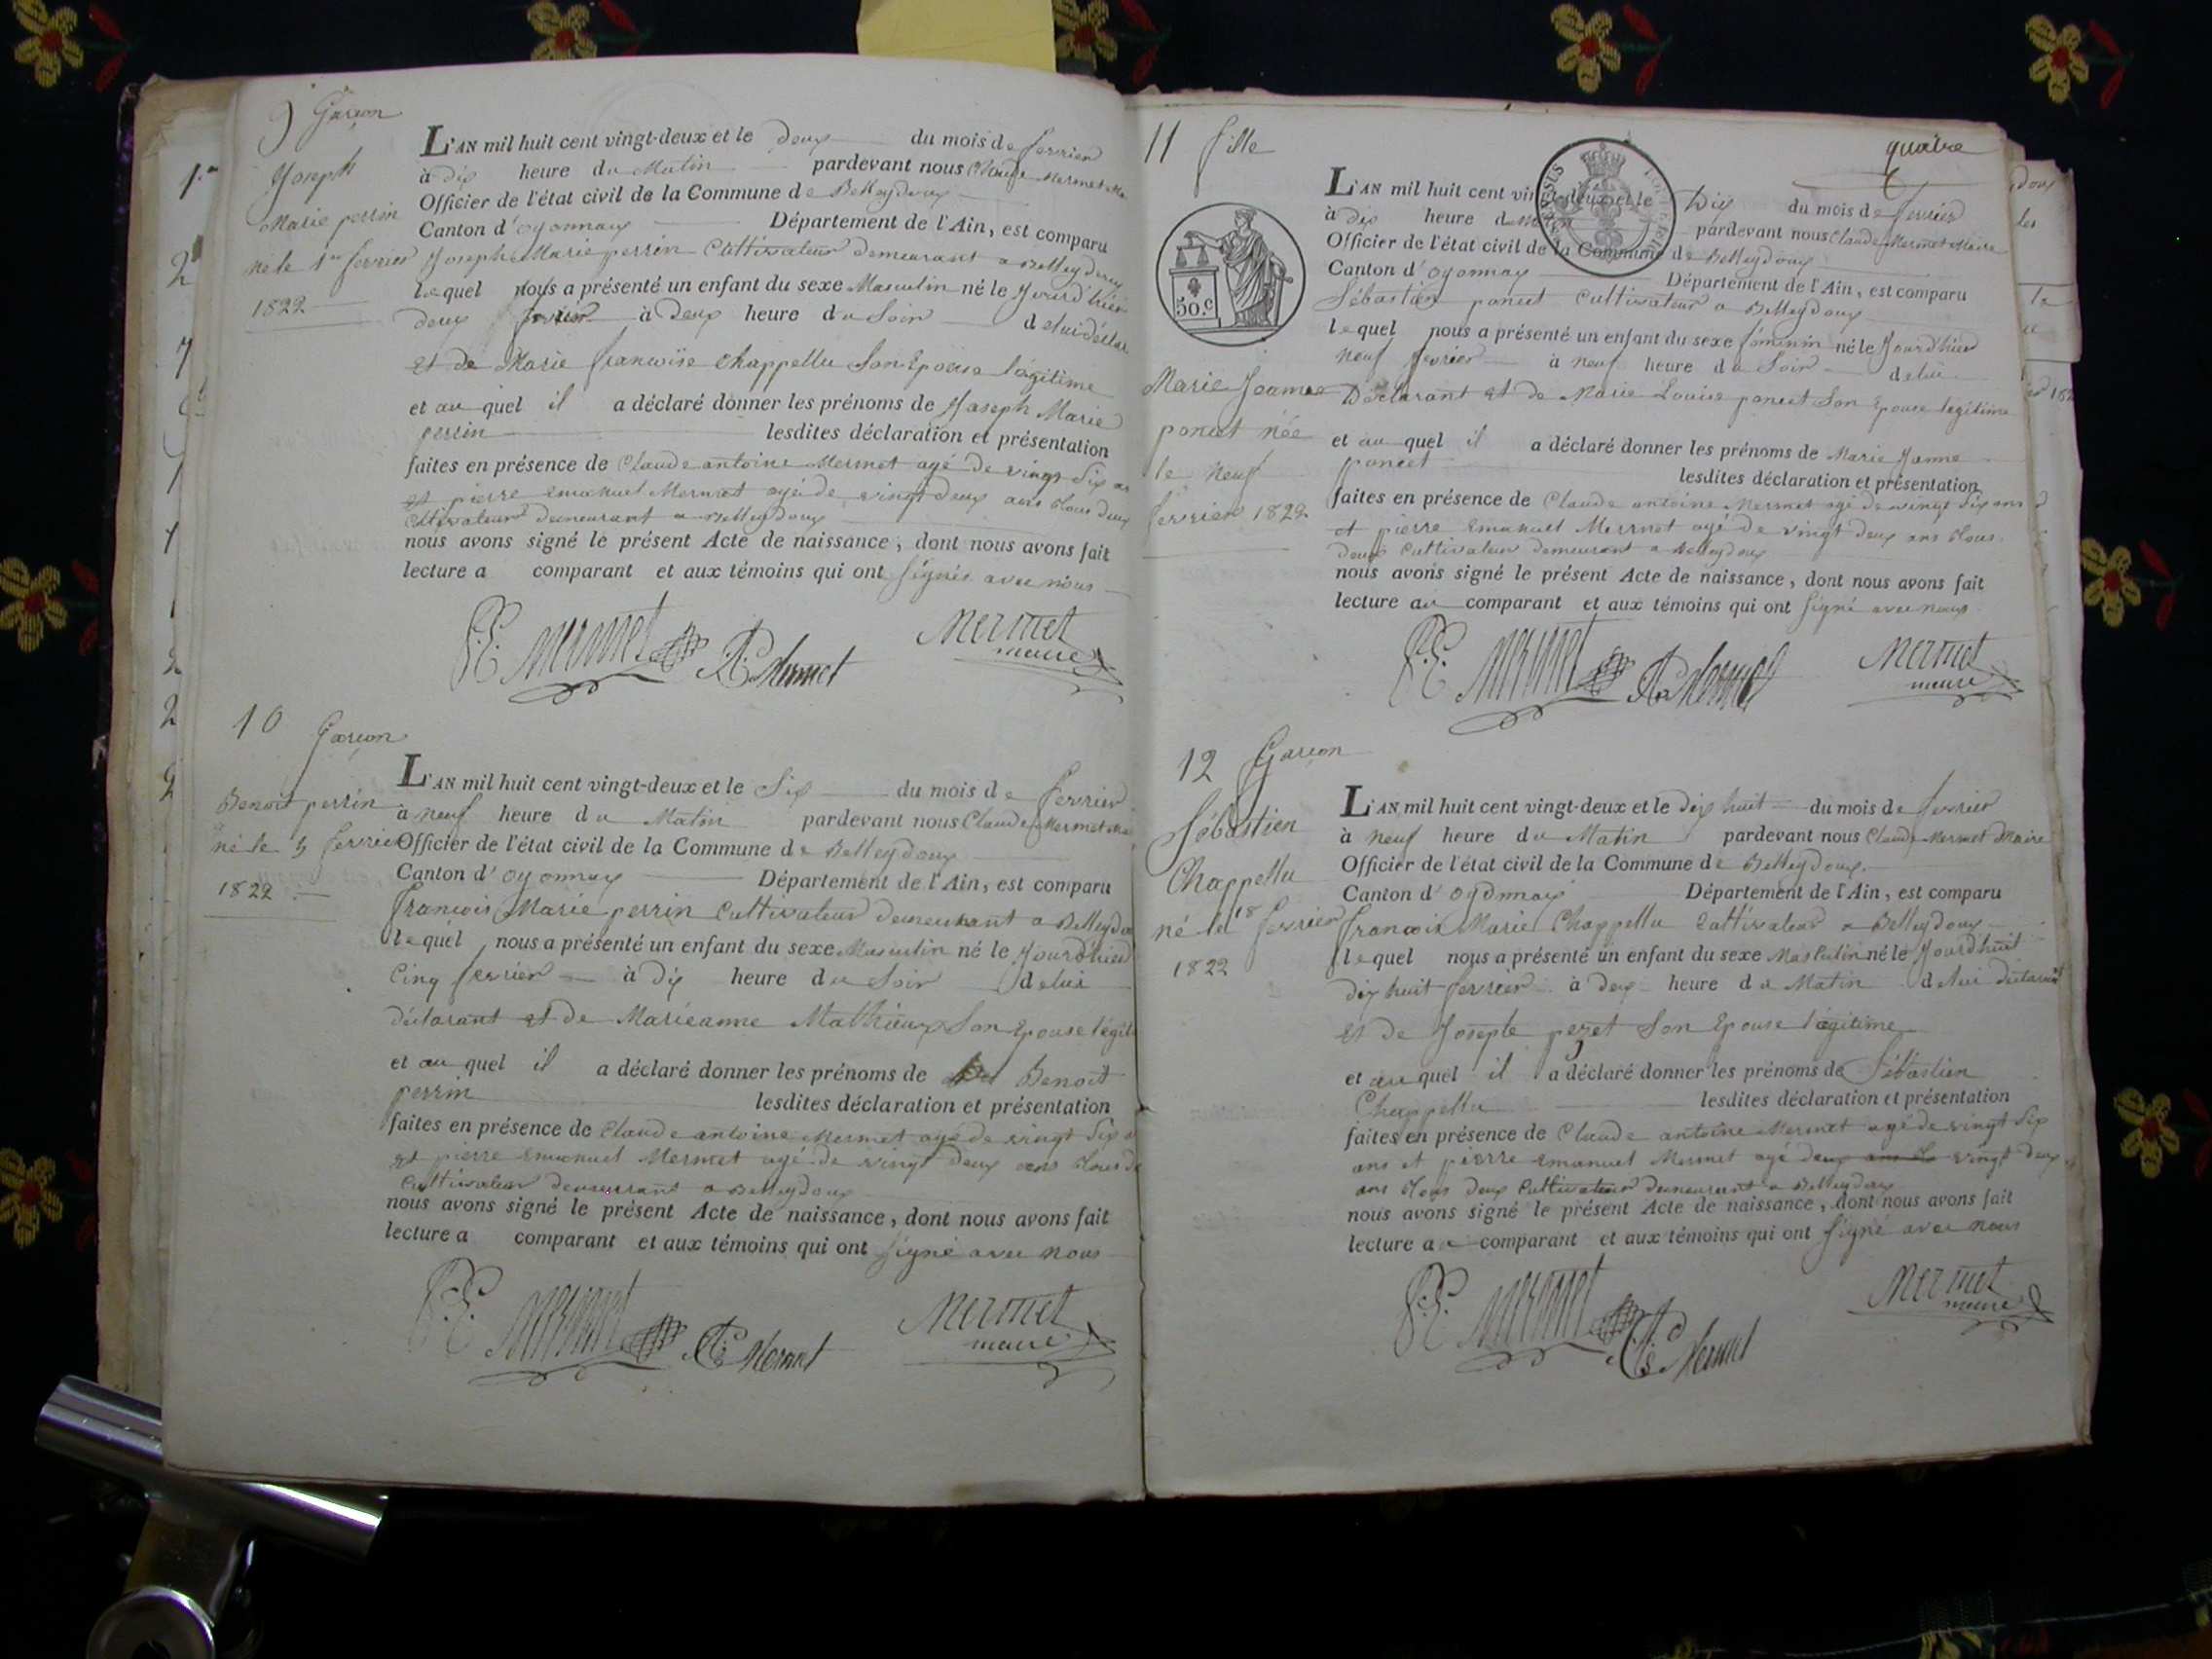 9 Garçon
Joseph
Marie perrin
né le 1er fevrier
1822
L'AN mil huit cent vingt-deux et le deux du mois de fevrier
à dix heure du Matin pardevant nous Claude Mermet
Officier de l'état civil de la Commune de Belleydoux
Canton d'oyonnax Département de l'Ain, est comparu
Joseph Marie perrin Cultivateur demeurant a Belleydoux
lequel nous a présenté un enfant du sexe Masculin né le Jourd'hier
deux fevrier à deux heure du Soir de lui déclar
et de Marie françoise Chappellu Son Epouse légitime
et au quel il a déclaré donner les prénoms de Joseph Marie
perrin lesdites déclaration et présentation
faites en présence de Claude antoine Mermet agé de vingt Six an
et pierre emanuel Mermet agé de vingt deux ans tous deux
Cultivateur demeurant a Belleydoux
nous avons signé le présent Acte de naissance, dont nous avons fait
lecture a comparant et aux témoins qui ont signés avec nous
P.E. Mermet A C Mermet Mermet
maire
10 Garçon
Benoit perrin
né le 5 fevrier
1822
L'AN mil huit cent vingt-deux et le Six du mois de fevrier
à neuf heure du Matin pardevant nous Claude Mermet
Officier de l'état civil de la Commune de Belleydoux
Canton d'oyonnax Département de l'Ain, est comparu
François Marie perrin Cultivateur demeurant a Belleydou
lequel nous a présenté un enfant du sexe Masculin né le Jourd'hier
Cinq fevrier à dix heure du Soir de lui
déclarant et de Marieanne Mathieux Son Epouse légit
et au quel il a déclaré donner les prénoms de Benoit
perrin lesdites déclaration et présentation
faites en présence de Claude antoine Mermet agé de vingt Six a
et pierre emanuel Mermet agé de vingt deux ans tous de
Cultivateur demeurant a Belleydoux
nous avons signé le présent Acte de naissance, dont nous avons fait
lecture a comparant et aux témoins qui ont signé avec nous
P.E. Mermet A C Mermet Mermet
maire
quatre
11 fille
50.c
Marie Jeanne
poncet née
le neuf
fevrier 1822
L'AN mil huit cent vingt-deux et le Dix du mois de fevrier
à dix heure du Matin pardevant nous Claude Mermet Maire
Officier de l'état civil de la Commune de Belleydoux
Canton d'oyonnax Département de l'Ain, est comparu
Sébastien poncet Cultivateur a Belleydoux
lequel nous a présenté un enfant du sexe féminin né le Jourd'hier
neuf fevrier à neuf heure du Soir de lui
Déclarant et de Marie Louise poncet Son Epouse legitime
et au quel il a déclaré donner les prénoms de Marie Janne
poncet lesdites déclaration et présentation
faites en présence de Claude antoine Mermet agé de vingt Six ans
et pierre Emanuel Mermet agé de vingt deux ans tous
deux Cultivateur demeurant a Belleydoux
nous avons signé le présent Acte de naissance, dont nous avons fait
lecture au comparant et aux témoins qui ont signé avec nous
P.E. Mermet A C Mermet Mermet
maire
12 Garçon
Sébastien
Chappellu
né le 18 fevrier
1822
L'AN mil huit cent vingt-deux et le dix huit du mois de fevrier
à neuf heure du Matin pardevant nous Claude Mermet Maire
Officier de l'état civil de la Commune de Belleydoux
Canton d'oyonnax Département de l'Ain, est comparu
françois Marie Chappellu Cultivateur a Belleydoux
lequel nous a présenté un enfant du sexe Masculin né le Jourd'huit
dix huit fevrier à deux heure du Matin de lui déclarant
et de Josepte perret Son Epouse légitime
et au quel il a déclaré donner les prénoms de Sébastien
Chappellu lesdites déclaration et présentation
faites en présence de Claude antoine Mermet agé de vingt Six
ans et pierre emanuel Mermet agé deux ans vingt deux
ans tous deux Cultivateur demeurant a Belleydoux
nous avons signé le présent Acte de naissance, dont nous avons fait
lecture au comparant et aux témoins qui ont signé avec nous
P.E. Mermet A C Mermet Mermet
maire